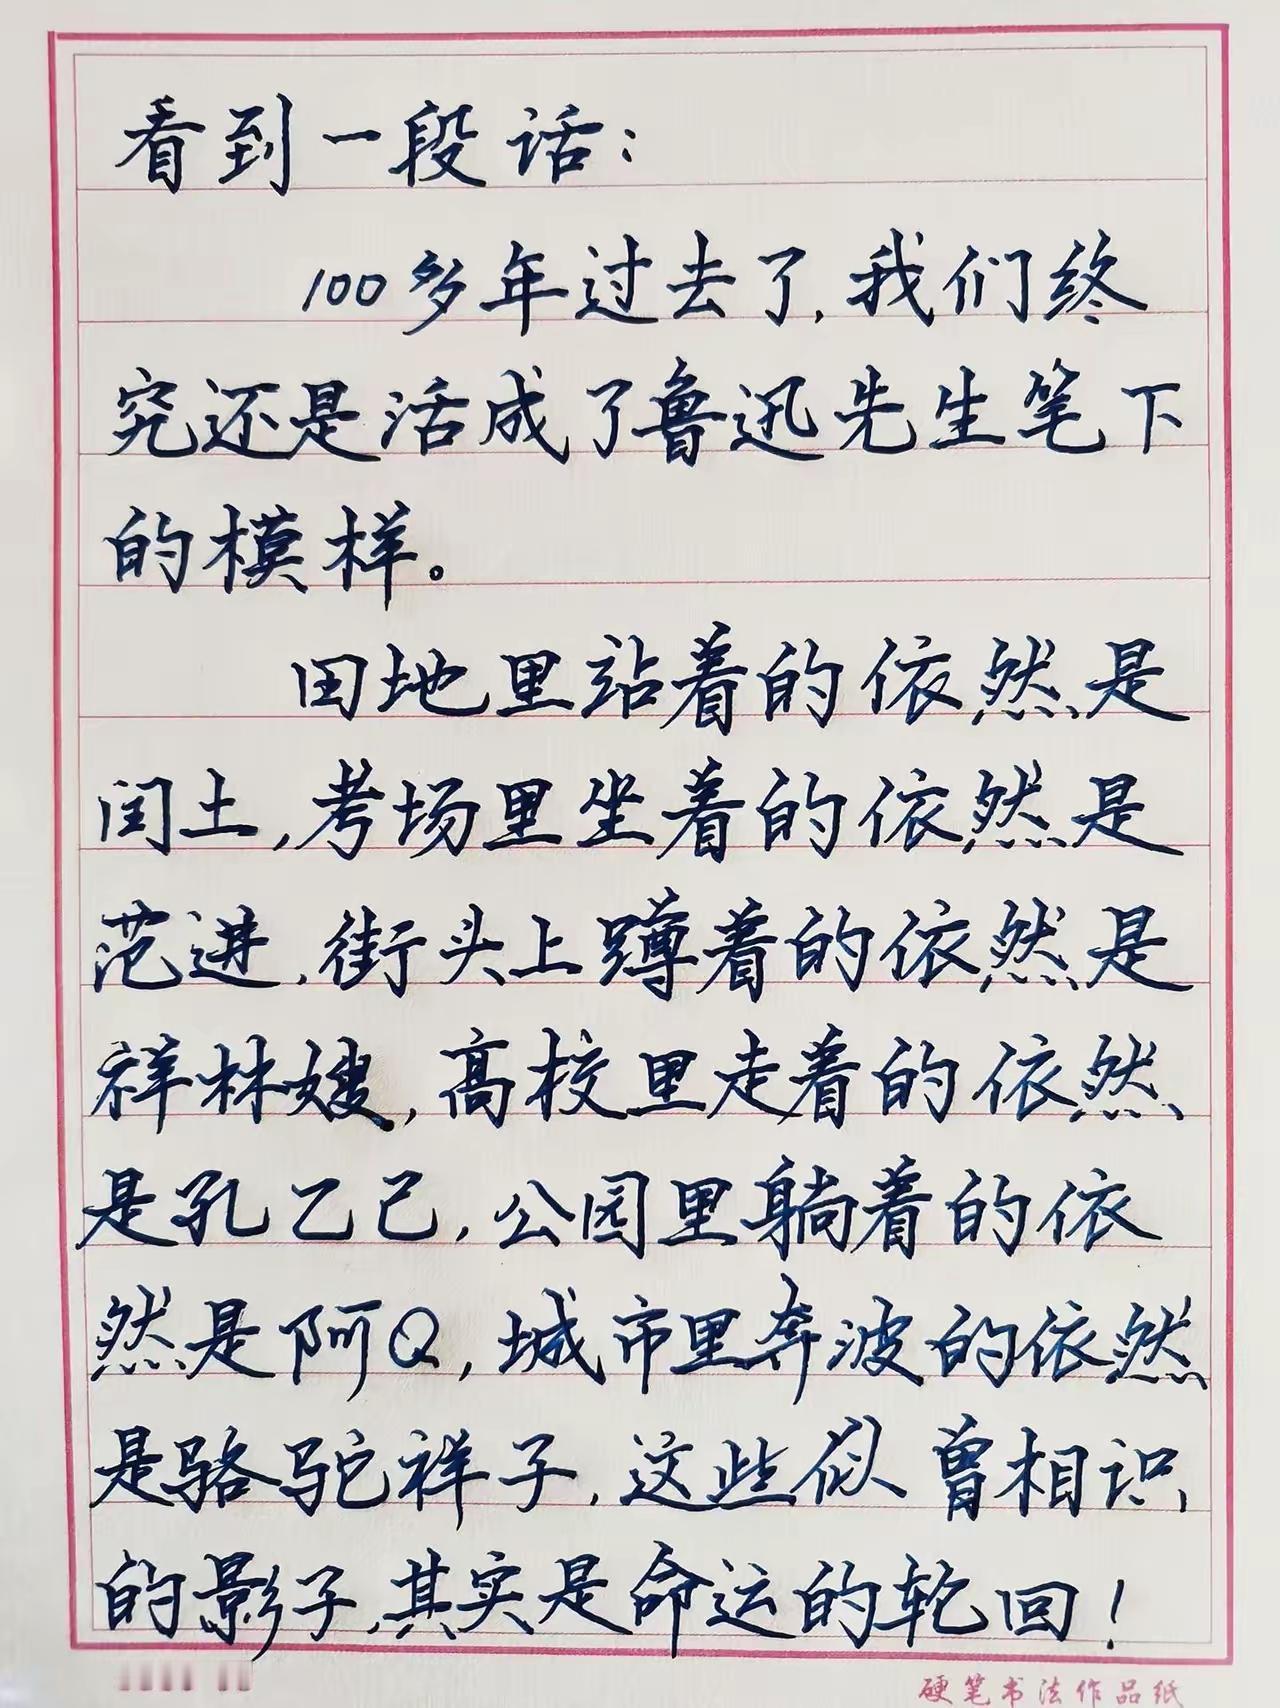 看到一段话：
100多年过去了，我们终
究还是活成了鲁迅先生笔下
的模样。
田地里站着的依然是
闰土，考场里坐着的依然是
范进，街头上蹲着的依然是
祥林嫂，高校里走着的依然
是孔乙己，公园里躺着的依
然是阿Q，城市里奔波的依然
是骆驼祥子，这些似曾相识
的影子，其实是命运的轮回！
硬笔书法作品纸